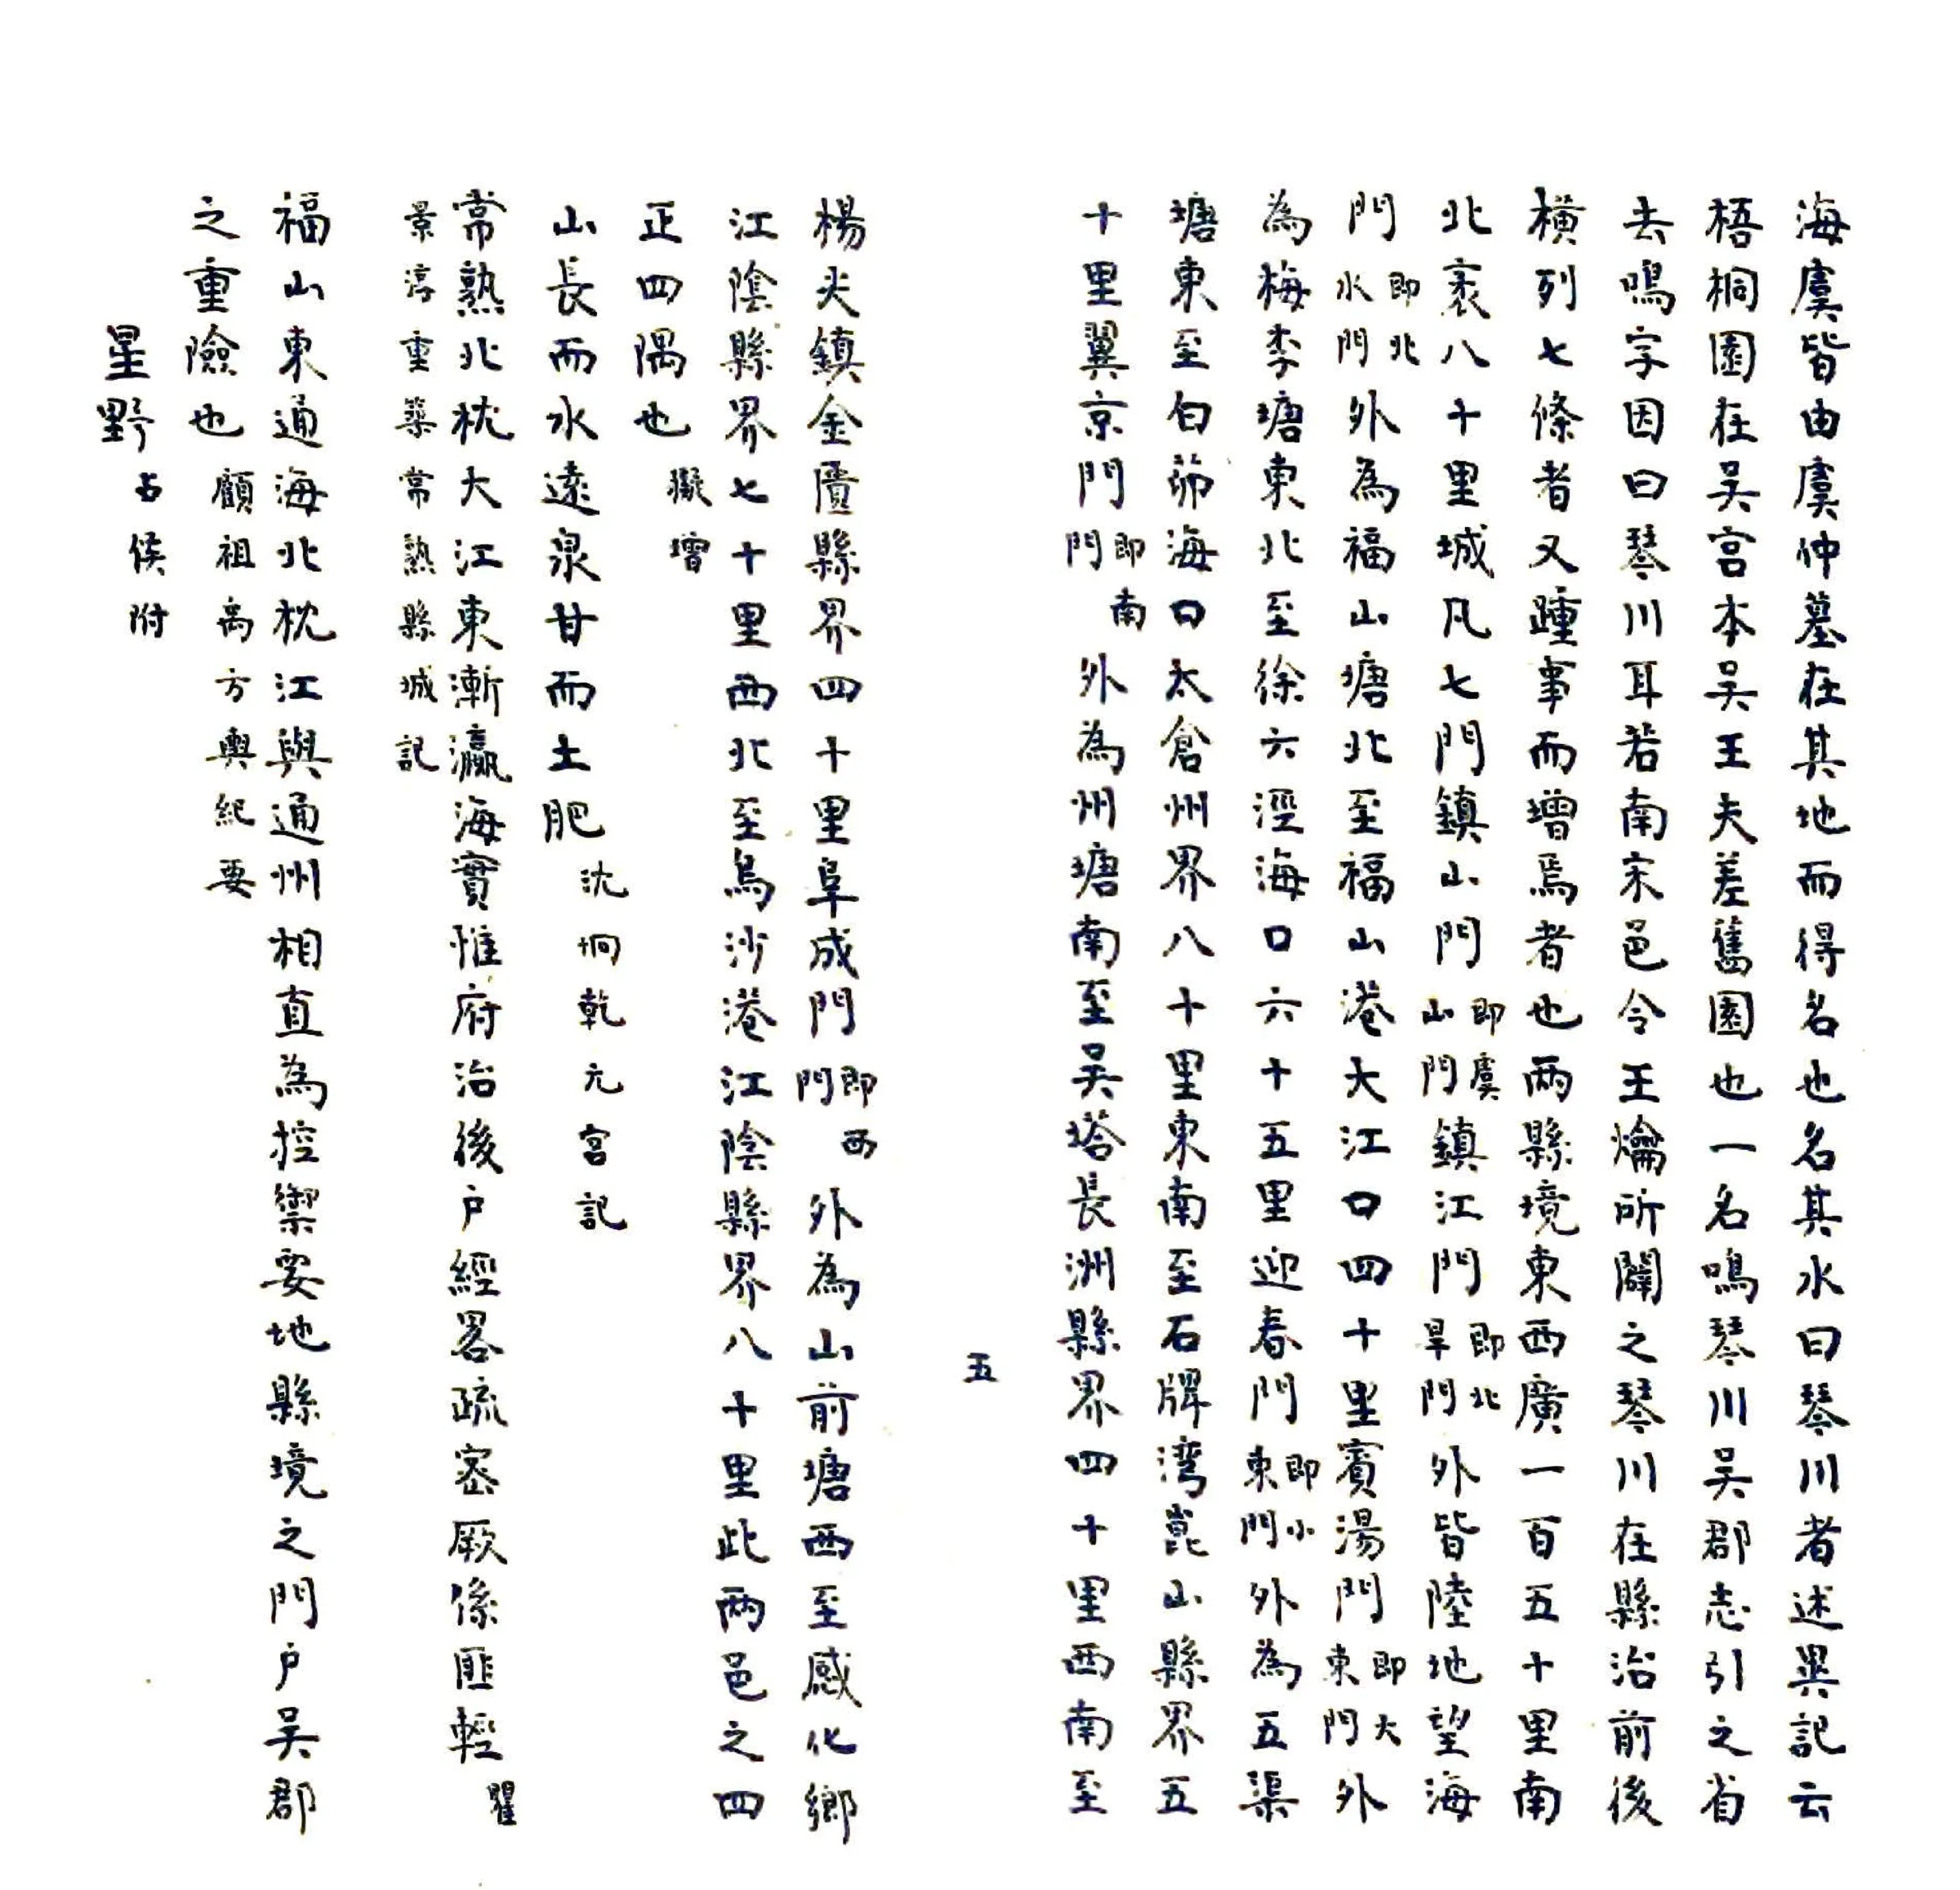 海虞皆由虞仲墓在其地而得名也名其水曰琴川者述異記云
梧桐園在吴宫本吴王夫差舊園也一名鳴琴川吴郡志引之省
去鳴字因曰琴川耳若南宋邑令王爚所闢之琴川在縣治前後
橫列七條者又踵事而增焉者也兩縣境東西廣一百五十里南
北袤八十里城凡七門鎮山門即虞山門鎮江門即北旱門外皆陸地望海
門即北水門外為福山塘北至福山港大江口四十里賓湯門即大東門外
為梅李塘東北至徐六涇海口六十五里迎春門即小東門外為五渠
塘東至白茆海口太倉州界八十里東南至石牌湾崑山縣界五
十里翼京門即南門外為州塘南至吴塔長洲縣界四十里西南至
五
楊尖鎮金匱縣界四十里阜成門即西門外為山前塘西至感化鄉
江陰縣界七十里西北至烏沙港江陰縣界八十里此兩邑之四
正四隅也擬增
山長而水遠泉甘而土肥沈坰乾元宮記
常熟北枕大江東漸瀛海實惟府治後户經畧疏密厥係匪輕瞿
景淳重築常熟縣城記
福山東通海北枕江與通州相直為控禦要地縣境之門户吴郡
之重險也顧祖禹方輿紀要
星野占候附